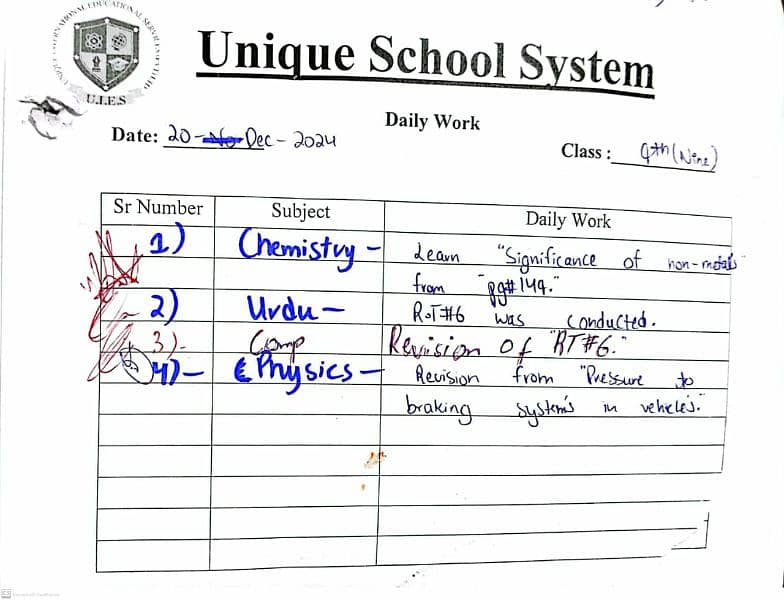 Unique School System
U.I.E.S
Daily Work
Date: 20-Dec-2024
Class: 9th (Nine)
Sr Number Subject Daily Work
1) Chemistry - Learn "Significance of non-metals"
from "pg#149."
2) Urdu - R.T#6 was conducted.
3)- Comp Revision of "RT#6."
4)- Physics - Revision from "Pressure to
braking system's in vehicles."